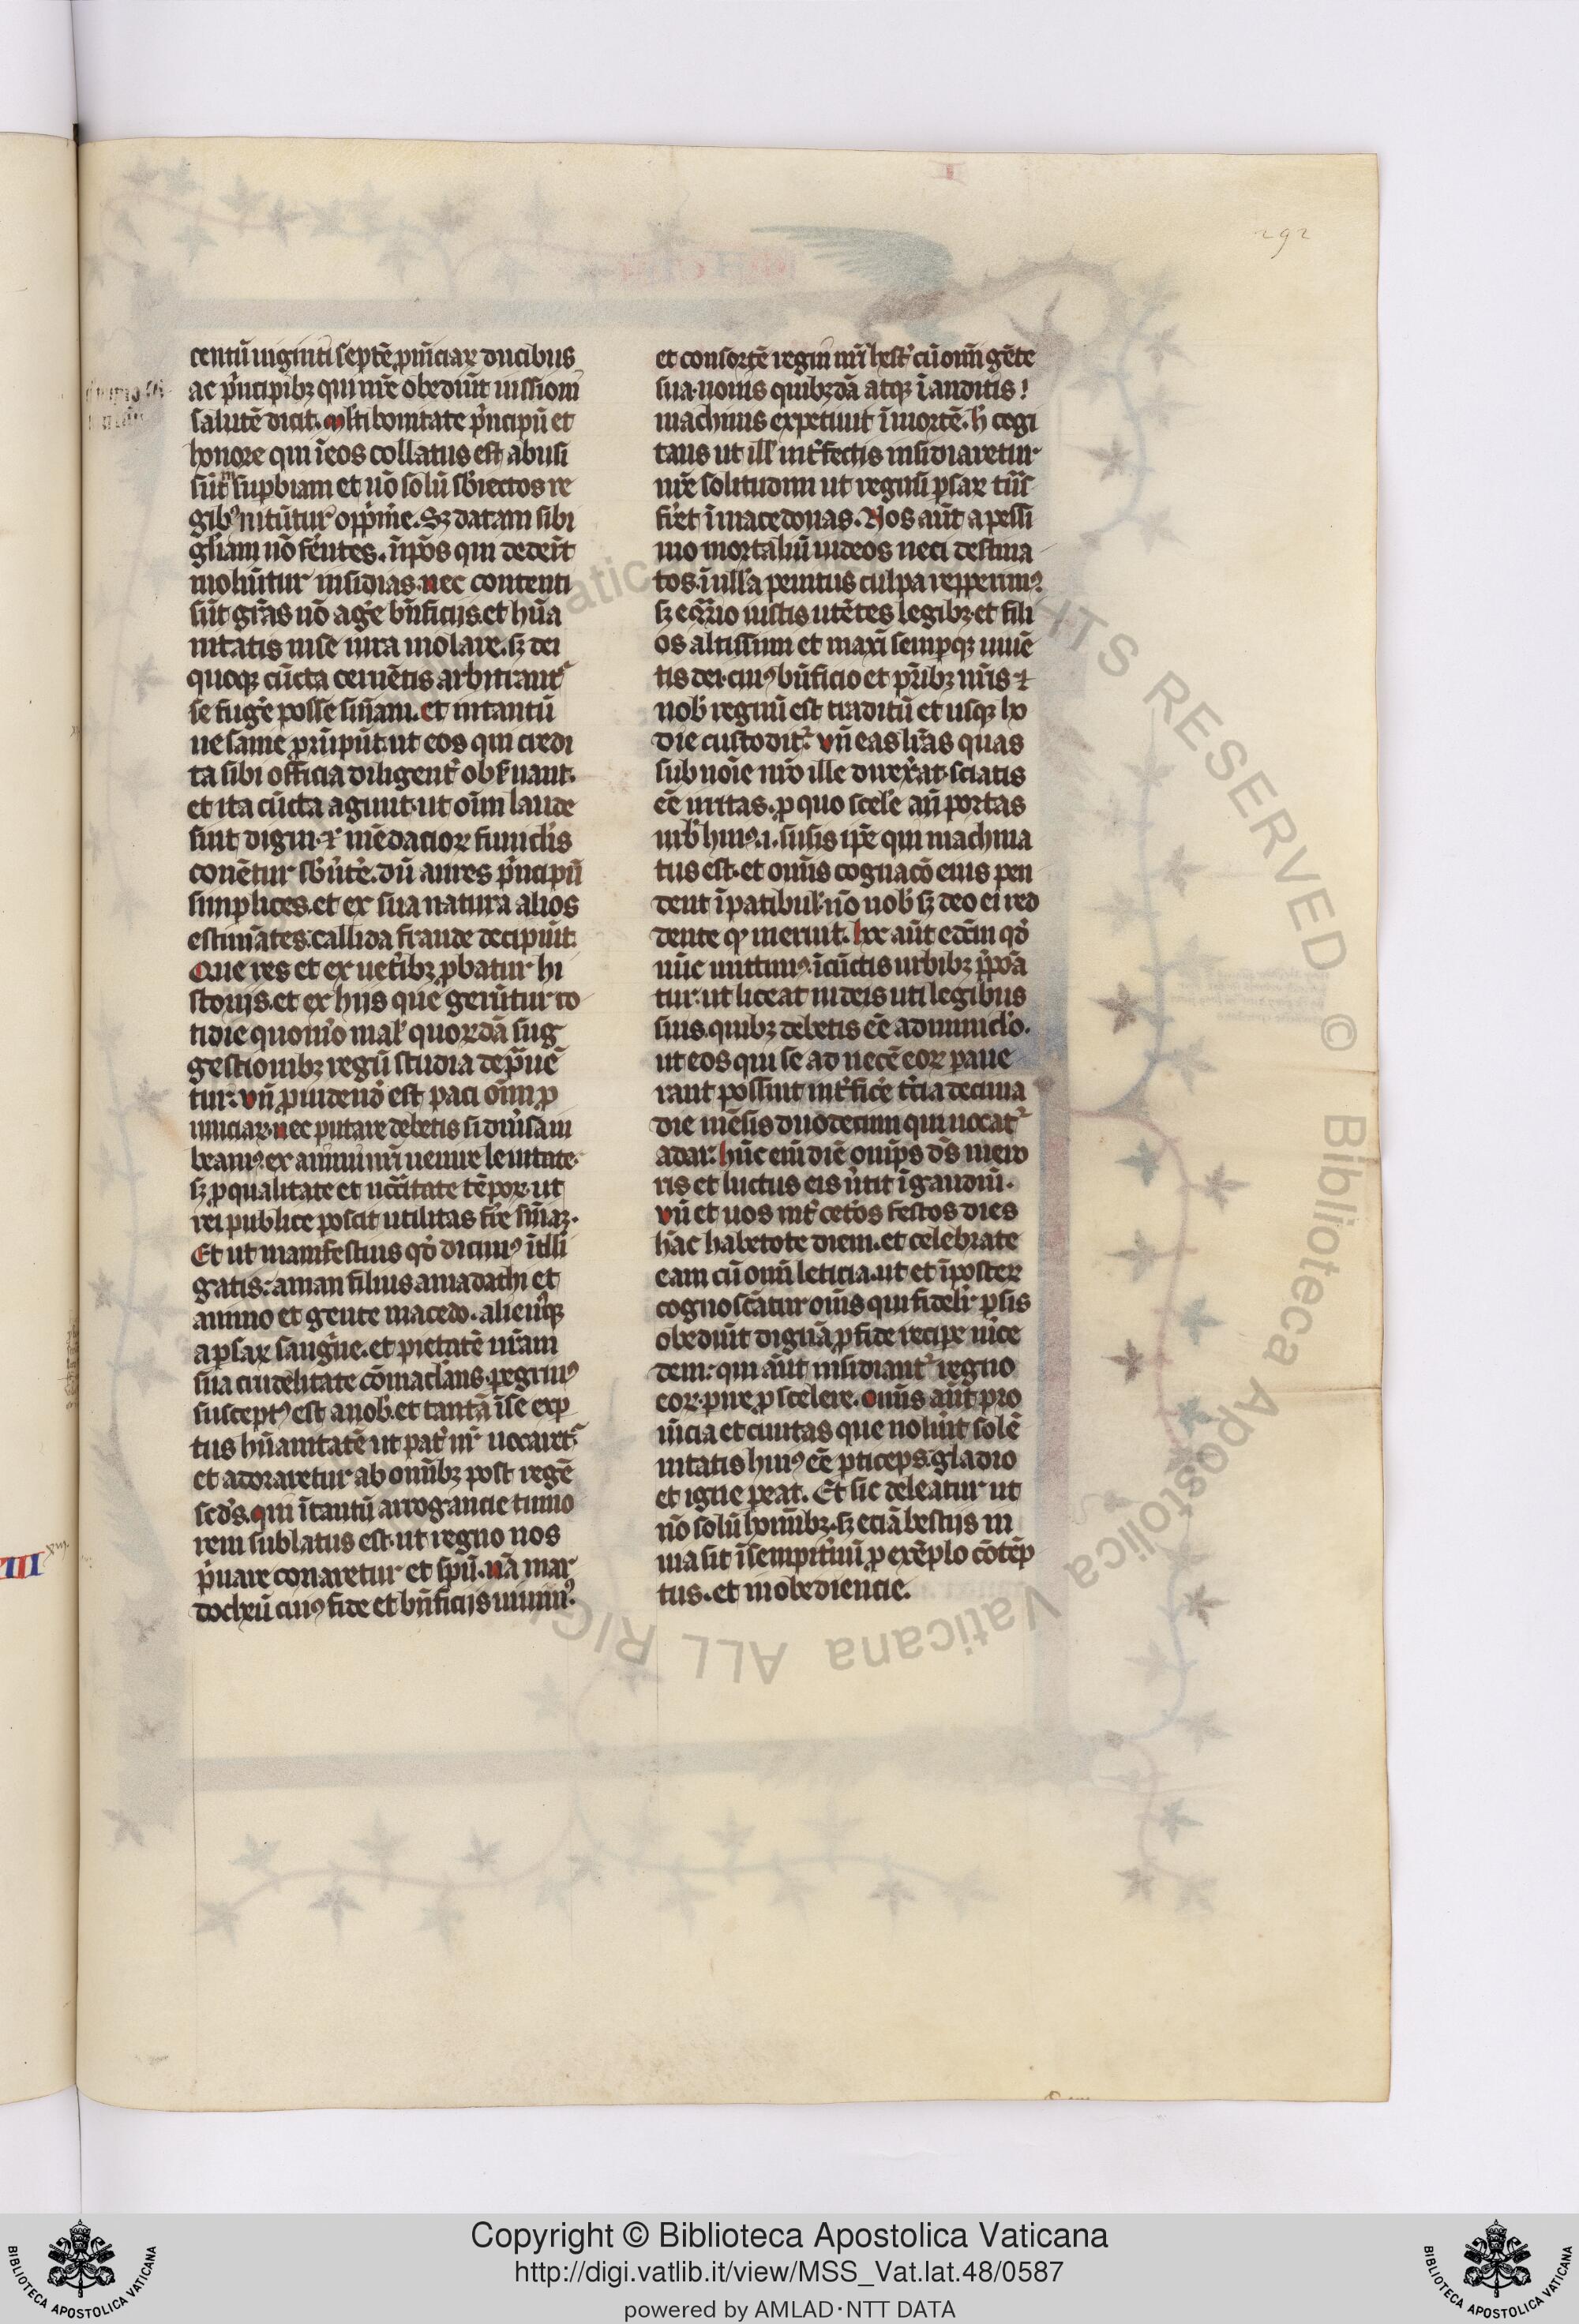 292
centū uiginti septē ꝓuīciaꝝ ducibus
ac pⁱncipibꝫ qui nr̄e obediūt iussioni
salutē dicit. Mlti bonitate pⁱncipū et
honore qui ī eos collatus est abusi
sūt ī supbiam et nō solū sb̄iectos re
gibꝰ nitūtur oppⁱmē. Sꝫ datam sibi
gl̄iam nō fēntes. īip̄os qui dedert̄
moliūtur insidias. nec contenti
sūt gr̄as nō agē bn̄ficijs. et hūa
nitatis in se iura uiolare. sꝫ dei
quoqꝫ cūcta cernētis arbitrant᷑
se fugē posse sn̄iam. et intantū
uesanie ꝓrūpūt. ut eos qui credi
ta sibi officia diligent᷑ obẜuant.
et ita cūcta agunt. ut oīm laude
sint digni. ⁊ mēdacioꝝ funiclīs
conētur sb̄utē. dū aures pⁱncipū
simplices. et ex sua natura alios
estimātes. callida fraude decipiūt.
Que res et ex uetībꝫ ꝓbatur hi
storijs. et ex hijs que gerūtur co
tidie quomō mal̄ quordā sug
gestionibꝫ regū studia dep̄uē
tur. Vn̄ ꝓuidendū est paci oīm ꝓ
uinciaꝝ. nec putare debetis si diūsa iu
beamꝰ. ex animi nr̄i uenire leuitate.
sꝫ ꝓ qualitate et nccītate tēpoꝝ. ut
rei publice poscit utilitas fr̄e sn̄iaꝫ.
Et ut manifestius qd̄ dicimꝰ ītlli
gatis. aman filius amadathi et
animo et gente macedo. alienꝰqꝫ
a psaꝝ sangⁱne. et pietatē nr̄am
sua crudelitate cōmaculans. pegrinꝰ
susceptꝰ est a nob̄. et tantā ī se exp
tus hūanitatē ut pat᷑ nr̄ uocaret᷑
et adoraretur ab omībꝫ post regē
sed̄s. qui ītantū arrogancie tumo
rem sublatus est. ut regno nos
pⁱuare conaretur et spū. nā mar
docheū cuiꝰ fide et bn̄ficijs uiuimꝰ.
et consortē regni nr̄i hest᷑ cū omī gēte
sua. nouis quibꝫdā atqꝫ īauditis
machinis expetiuit ī mortē. h̄ cogi
tans ut ill̄ int᷑fectis insidiaretur
nr̄e solitudini ut regnū psaꝝ tn̄s
fr̄et ī macedonas. Nos aūt a pessi
mo mortaliū iudeos neci destina
tos. ī nulla penitus culpa repperimꝰ.
sꝫ econrio iustis utētes legibꝫ. et fili
os altissimi et maxī sempqꝫ uiuē
tis dei. cuiꝰ bn̄ficio et pr̄ibꝫ nr̄is ⁊
nob̄ regnū est traditū et usqꝫ ho
die custodit᷑. Vn̄ eas lr̄as quas
sub noīe nr̄o ille direxerat. sciatis
eē irritas. ꝓ quo scelē an̄ portas
urb̄ huiꝰ. i. susis ip̄e qui machina
tus est. et omīs cognacō eius pen
dent ī patibul̄. nō nob̄ sꝫ deo ei red
dente qᷓ meruit. hec aūt edcm̄ qd̄
nūc mittimꝰ. ī cūctis urbibꝫ ꝓpōa
tur. ut liceat iudeis uti legibus
suis. quibꝫ debetis eē adminicl̄o.
ut eos qui se ad necē eoꝝ paue
rant possint int᷑ficē t᷑cia decima
die mēsis duodecimi qui uocat᷑
adar. hūc eni diē omips d̄s mero
ris et luctus eis utit ī gaudiū.
Vn̄ et uos int᷑ cetos festos dies
hāc habetote diem. et celebrate
eam cū omī leticia. ut et ī posteꝝ
cognoscātur omīs qui fidelr̄ psis
obediūt dignā ꝓ fide recipe mīce
dem. qui aūt insidiant᷑ regno
eoꝝ. pire ꝓ scelere. Omīs aūt pro
uīcia et ciuitas que noluīt solē
nitatis huiꝰ eē pticeps. gladio
et igne peat. Et sic deleatur ut
nō solū hoīnibꝫ. sꝫ eciā bestijs in
uia sit ī sempitⁱnū ꝓ exēplo cōtēp
tus. et inobediencie.
VIII
Copyright © Biblioteca Apostolica Vaticana
http://digi.vatlib.it/view/MSS_Vat.lat.48/0587
powered by AMLAD·NTT DATA
BIBLIOTECA APOSTOLICA VATICANA
BIBLIOTECA APOSTOLICA VATICANA
© Biblioteca Apostolica Vaticana ALL RIGHTS RESERVED